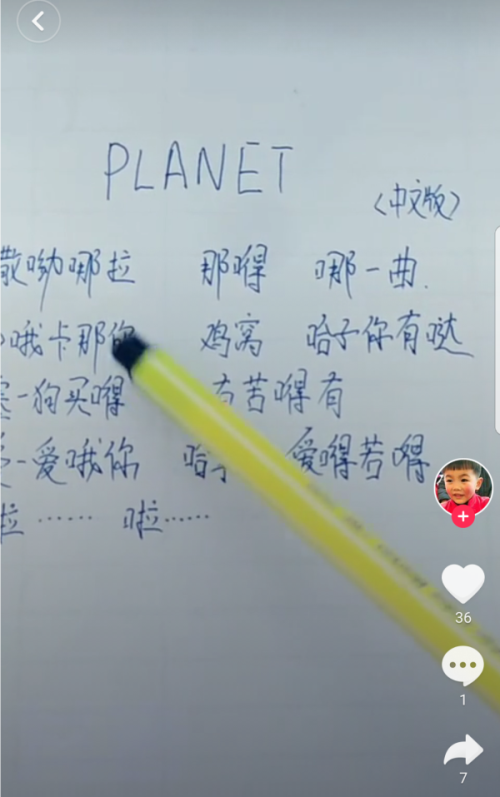 PLANET
〈中文版〉
散呦哪拉 那嘚 哪一曲.
哦卡那你 鸡窝 哈子你有哒
一狗买嘚 有苦嘚有
一爱哦你 哈子 爱嘚若嘚
啦…… 啦……
36
1
7